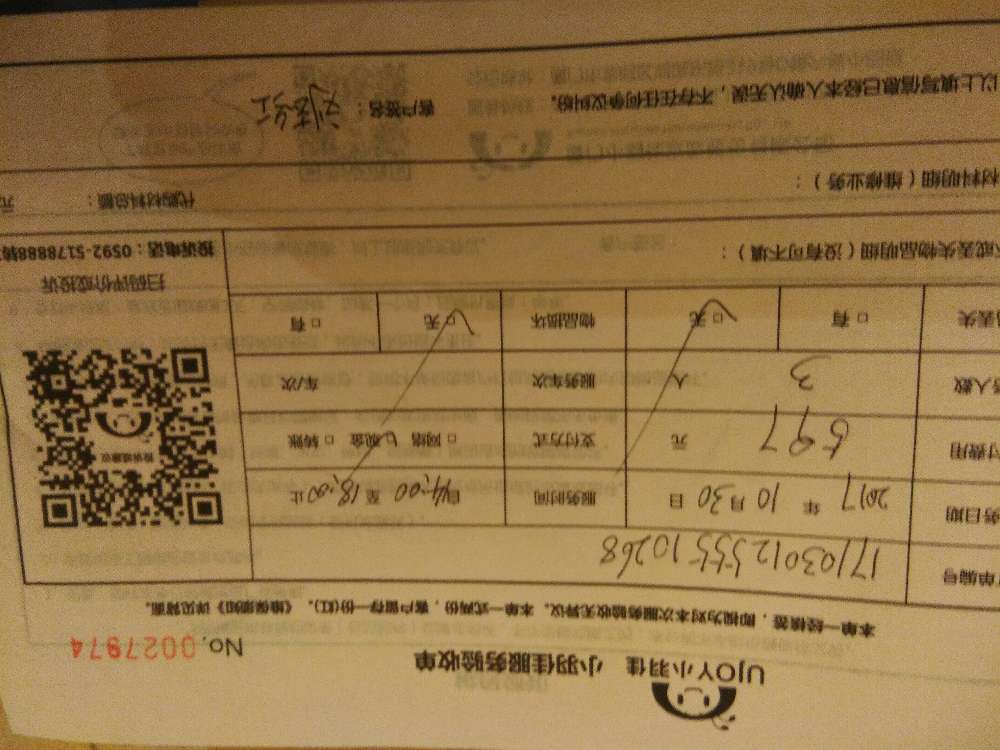 UJOY小羽佳 小羽佳服务验收单
No. 0027974
本单一经核签,即视为对本次服务验收无异议。本单一式两份,客户留存一份(红)。《维保须知》详见背面。
单编号 17103012555510268
务日期 2017 年 10 月 30 日 服务时间 自 14:00 至 18:00 止
付费用 597 元 支付方式 □ 网络 □ 现金 □ 转账
务人数 3 人 服务车次 车/次
丢失 □ 有 □ 无 物品损坏 □ 无 □ 有
投诉或建议
扫码评价或投诉
投诉电话:0592-5178888转
或丢失物品明细(没有可不填):
材料明细(维修业务): 代购材料总额: 元
以上填写信息已经本人确认无误,不存在任何争议纠纷。 客户签名: